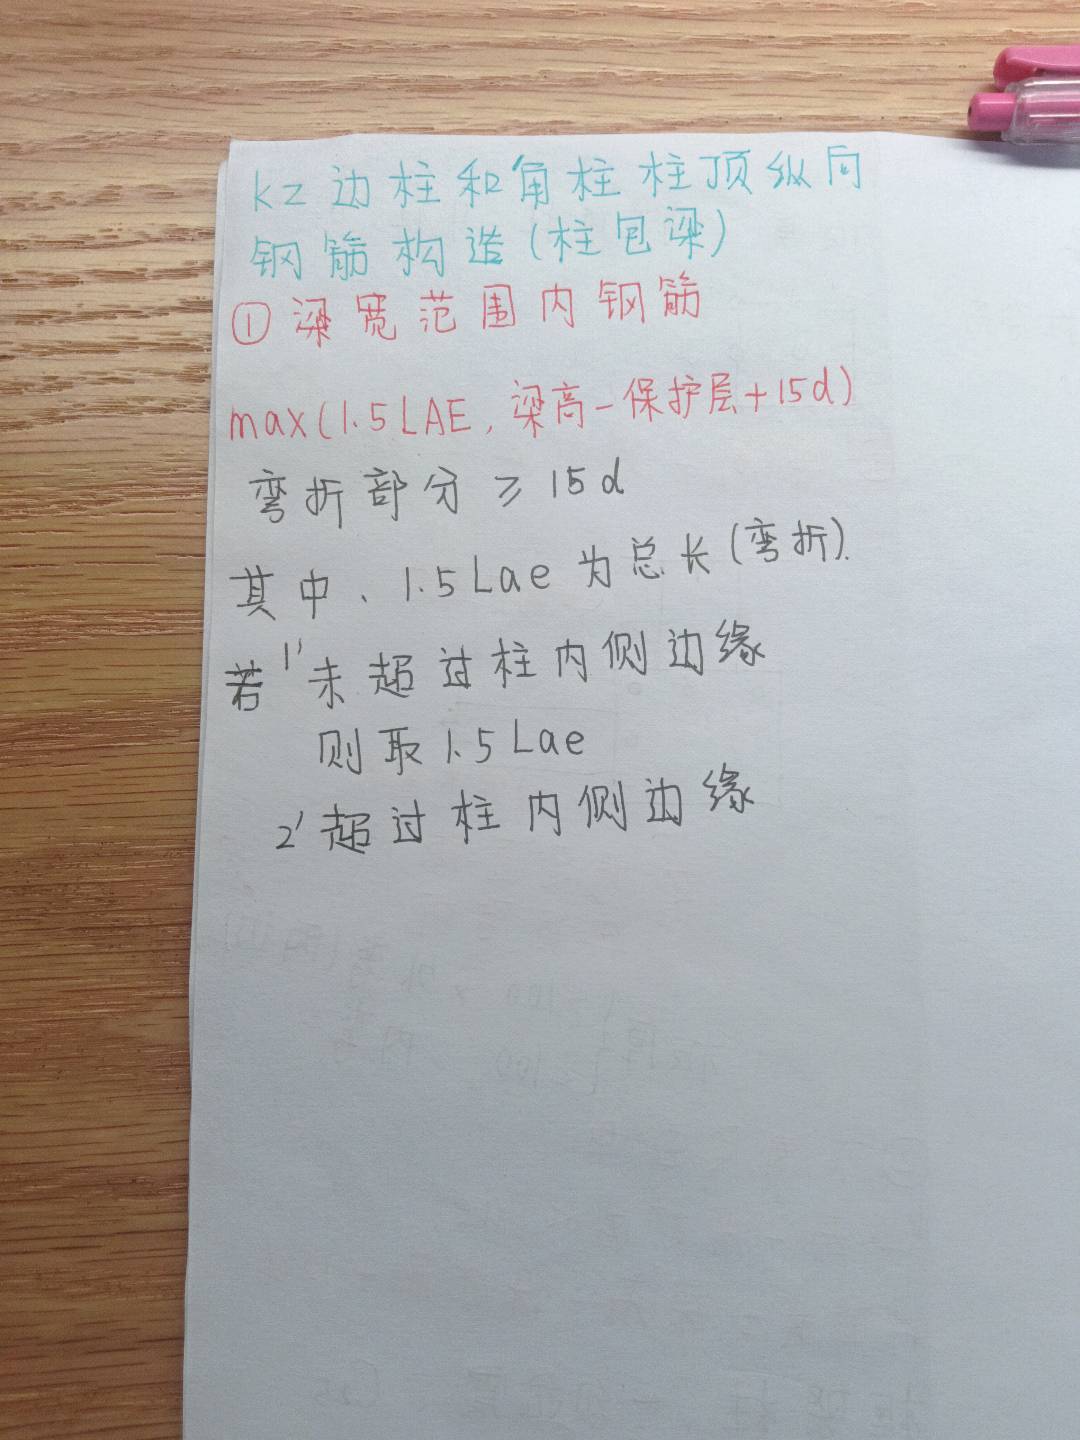 kz边柱和角柱柱顶纵向
钢筋构造(柱包梁)
①梁宽范围内钢筋
max(1.5LAE,梁高-保护层+15d)
弯折部分≥15d
其中、1.5Lae为总长(弯折).
若1'未超过柱内侧边缘
则取1.5Lae
2'超过柱内侧边缘